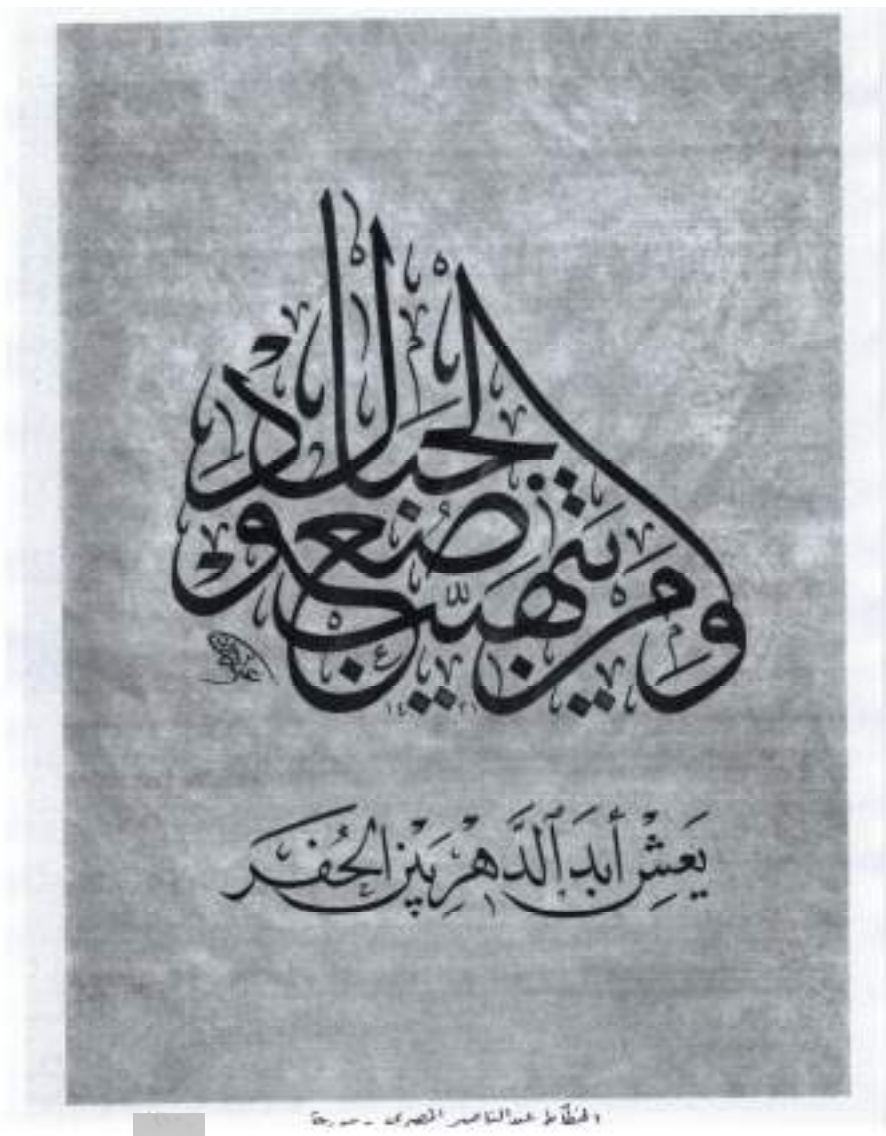 ومن يتهيّب صُعود الجبال
١٤٢١
يَعِشْ أَبَدَ ٱلدَّهْرِ بَيْنَ الحُفَر
الخطّاط عبدالناصر المصري - سورية